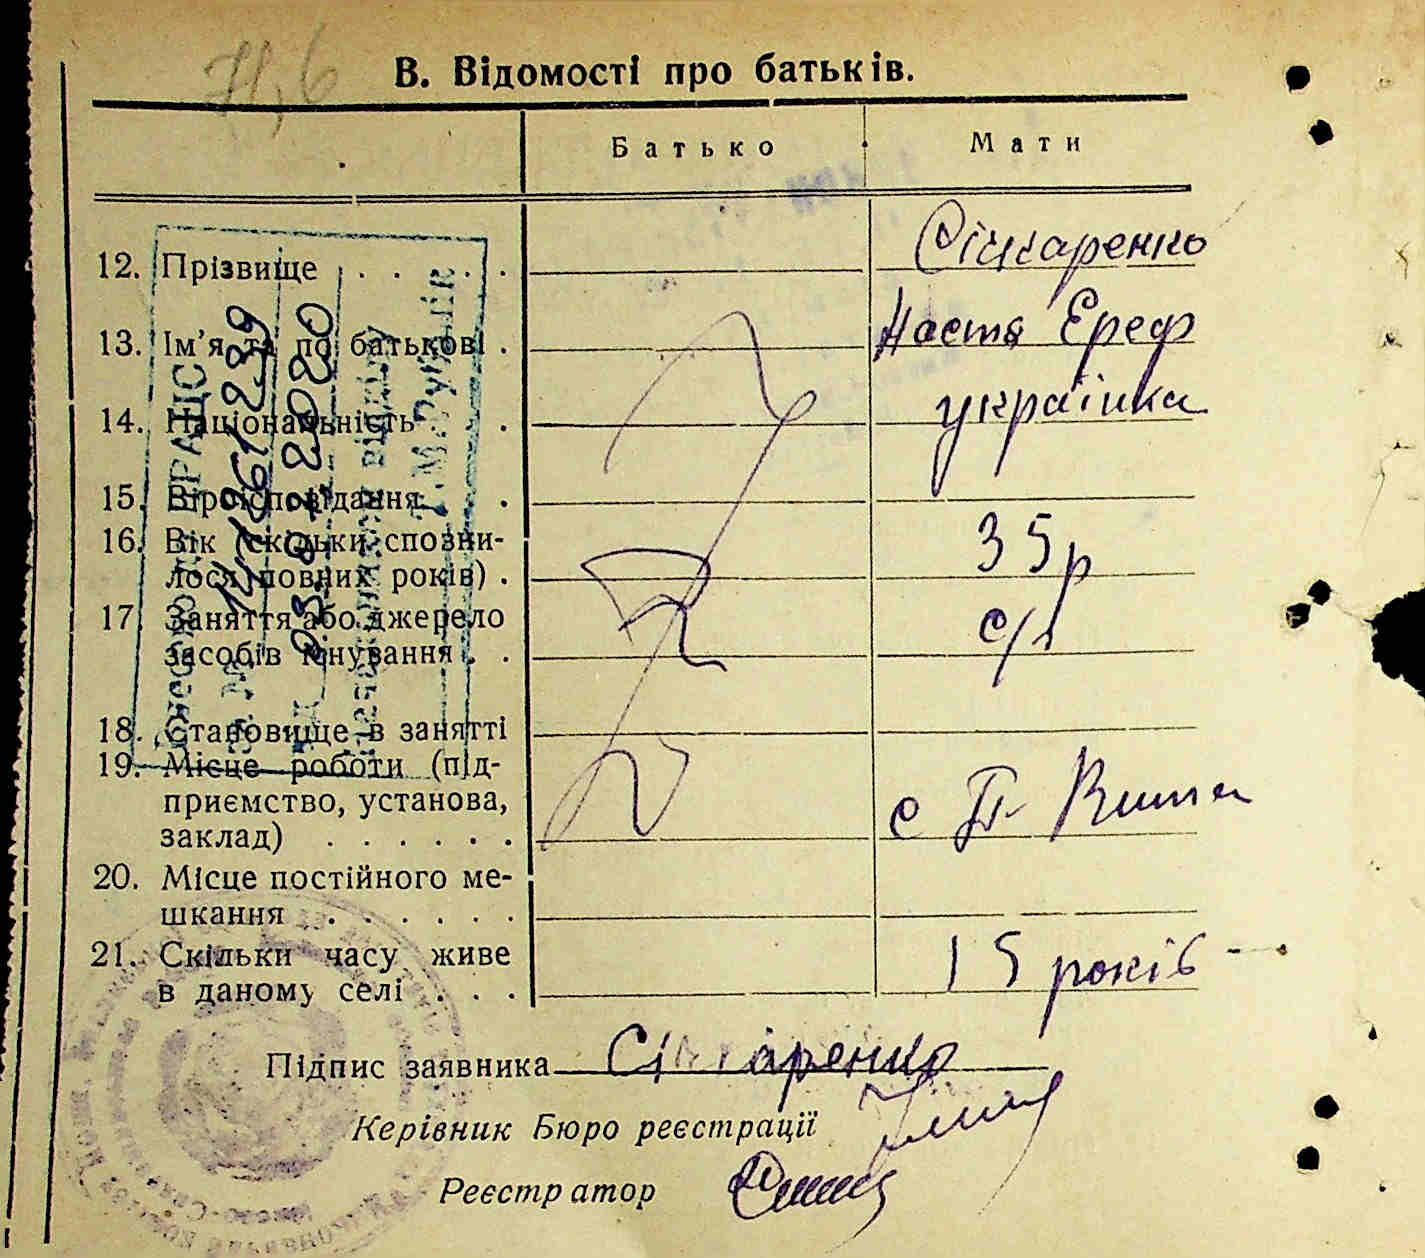 В. Відомості про батьків.
Батько Мати
12. Прізвище . . . . . Сішкаренко
13. Ім'я та по батькові . Настя Ереф
14. Національність . українка
15. Віросповідання .
16. Вік (скільки сповни-
лося повних років) . 35 р
17. Заняття або джерело
засобів існування . . с/г
18. Становище в занятті
19. Місце роботи (під-
приємство, установа,
заклад) . . . . . . с П-
20. Місце постійного ме-
шкання . . . . . .
21. Скільки часу живе
в даному селі . . . 15 років
Підпис заявника
Керівник Бюро реєстрації
Реєстратор